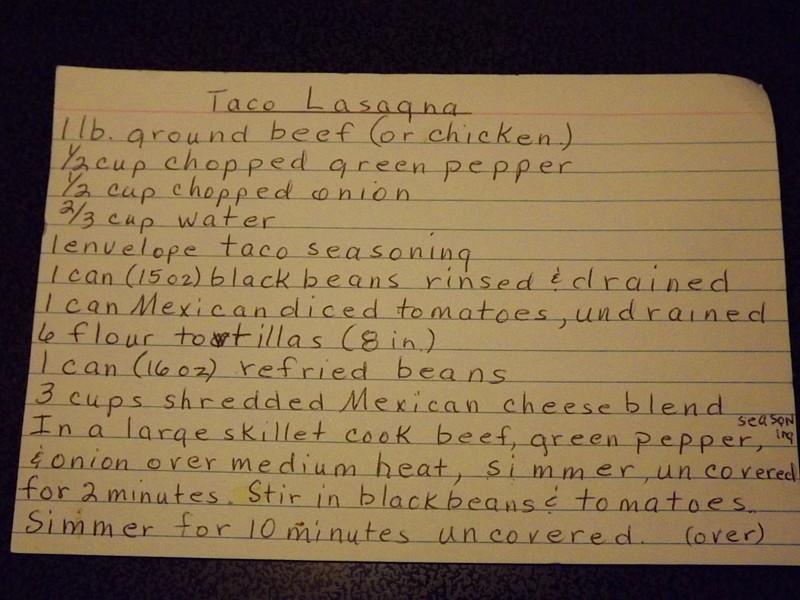 Taco Lasagna
1 lb. ground beef (or chicken)
1/2 cup chopped green pepper
1/2 cup chopped onion
2/3 cup water
1 envelope taco seasoning
1 can (15 oz) black beans rinsed & drained
1 can Mexican diced tomatoes, undrained
6 flour tortillas (8 in.)
1 can (16 oz) refried beans
3 cups shredded Mexican cheese blend
In a large skillet cook beef, green pepper, seasoning
& onion over medium heat, simmer, uncovered
for 2 minutes. Stir in black beans & tomatoes.
Simmer for 10 minutes uncovered. (over)